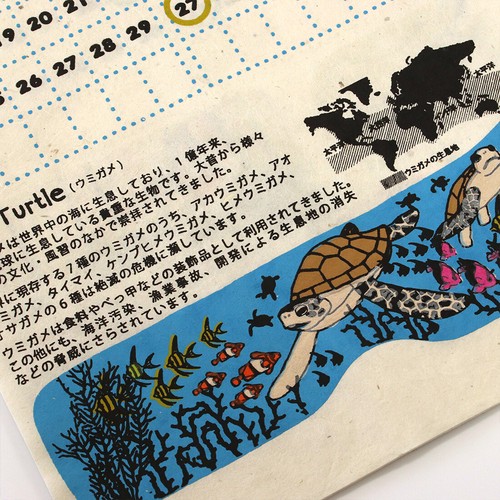 27
19 20 21 22
25 26 27 28 29
太平洋
大西洋
ウミガメの生息地
Turtle (ウミガメ)
は世界中の海に生息しており、1億年来、
球に生息している貴重な生物です。大昔から様々
の文化・風習のなかで崇拝されてきました。
に現存する7種のウミガメのうち、アカウミガメ、アオ
ミガメ、タイマイ、ケンプヒメウミガメ、ヒメウミガメ、
サガメの6種は絶滅の危機に瀕しています。
ウミガメは食料やべっ甲などの装飾品として利用されてきました。
この他にも、海洋汚染、漁業事故、開発による生息地の消失
などの脅威にさらされています。